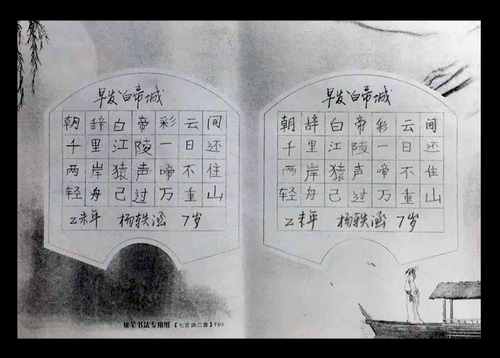 早发白帝城
朝辞白帝彩云间
千里江陵一日还
两岸猿声啼不住
轻舟已过万重山
乙未年 杨轶涵 7岁
早发白帝城
朝辞白帝彩云间
千里江陵一日还
两岸猿声啼不住
轻舟已过万重山
乙未年 杨轶涵 7岁
硬笔书法专用纸【七言诗二首】